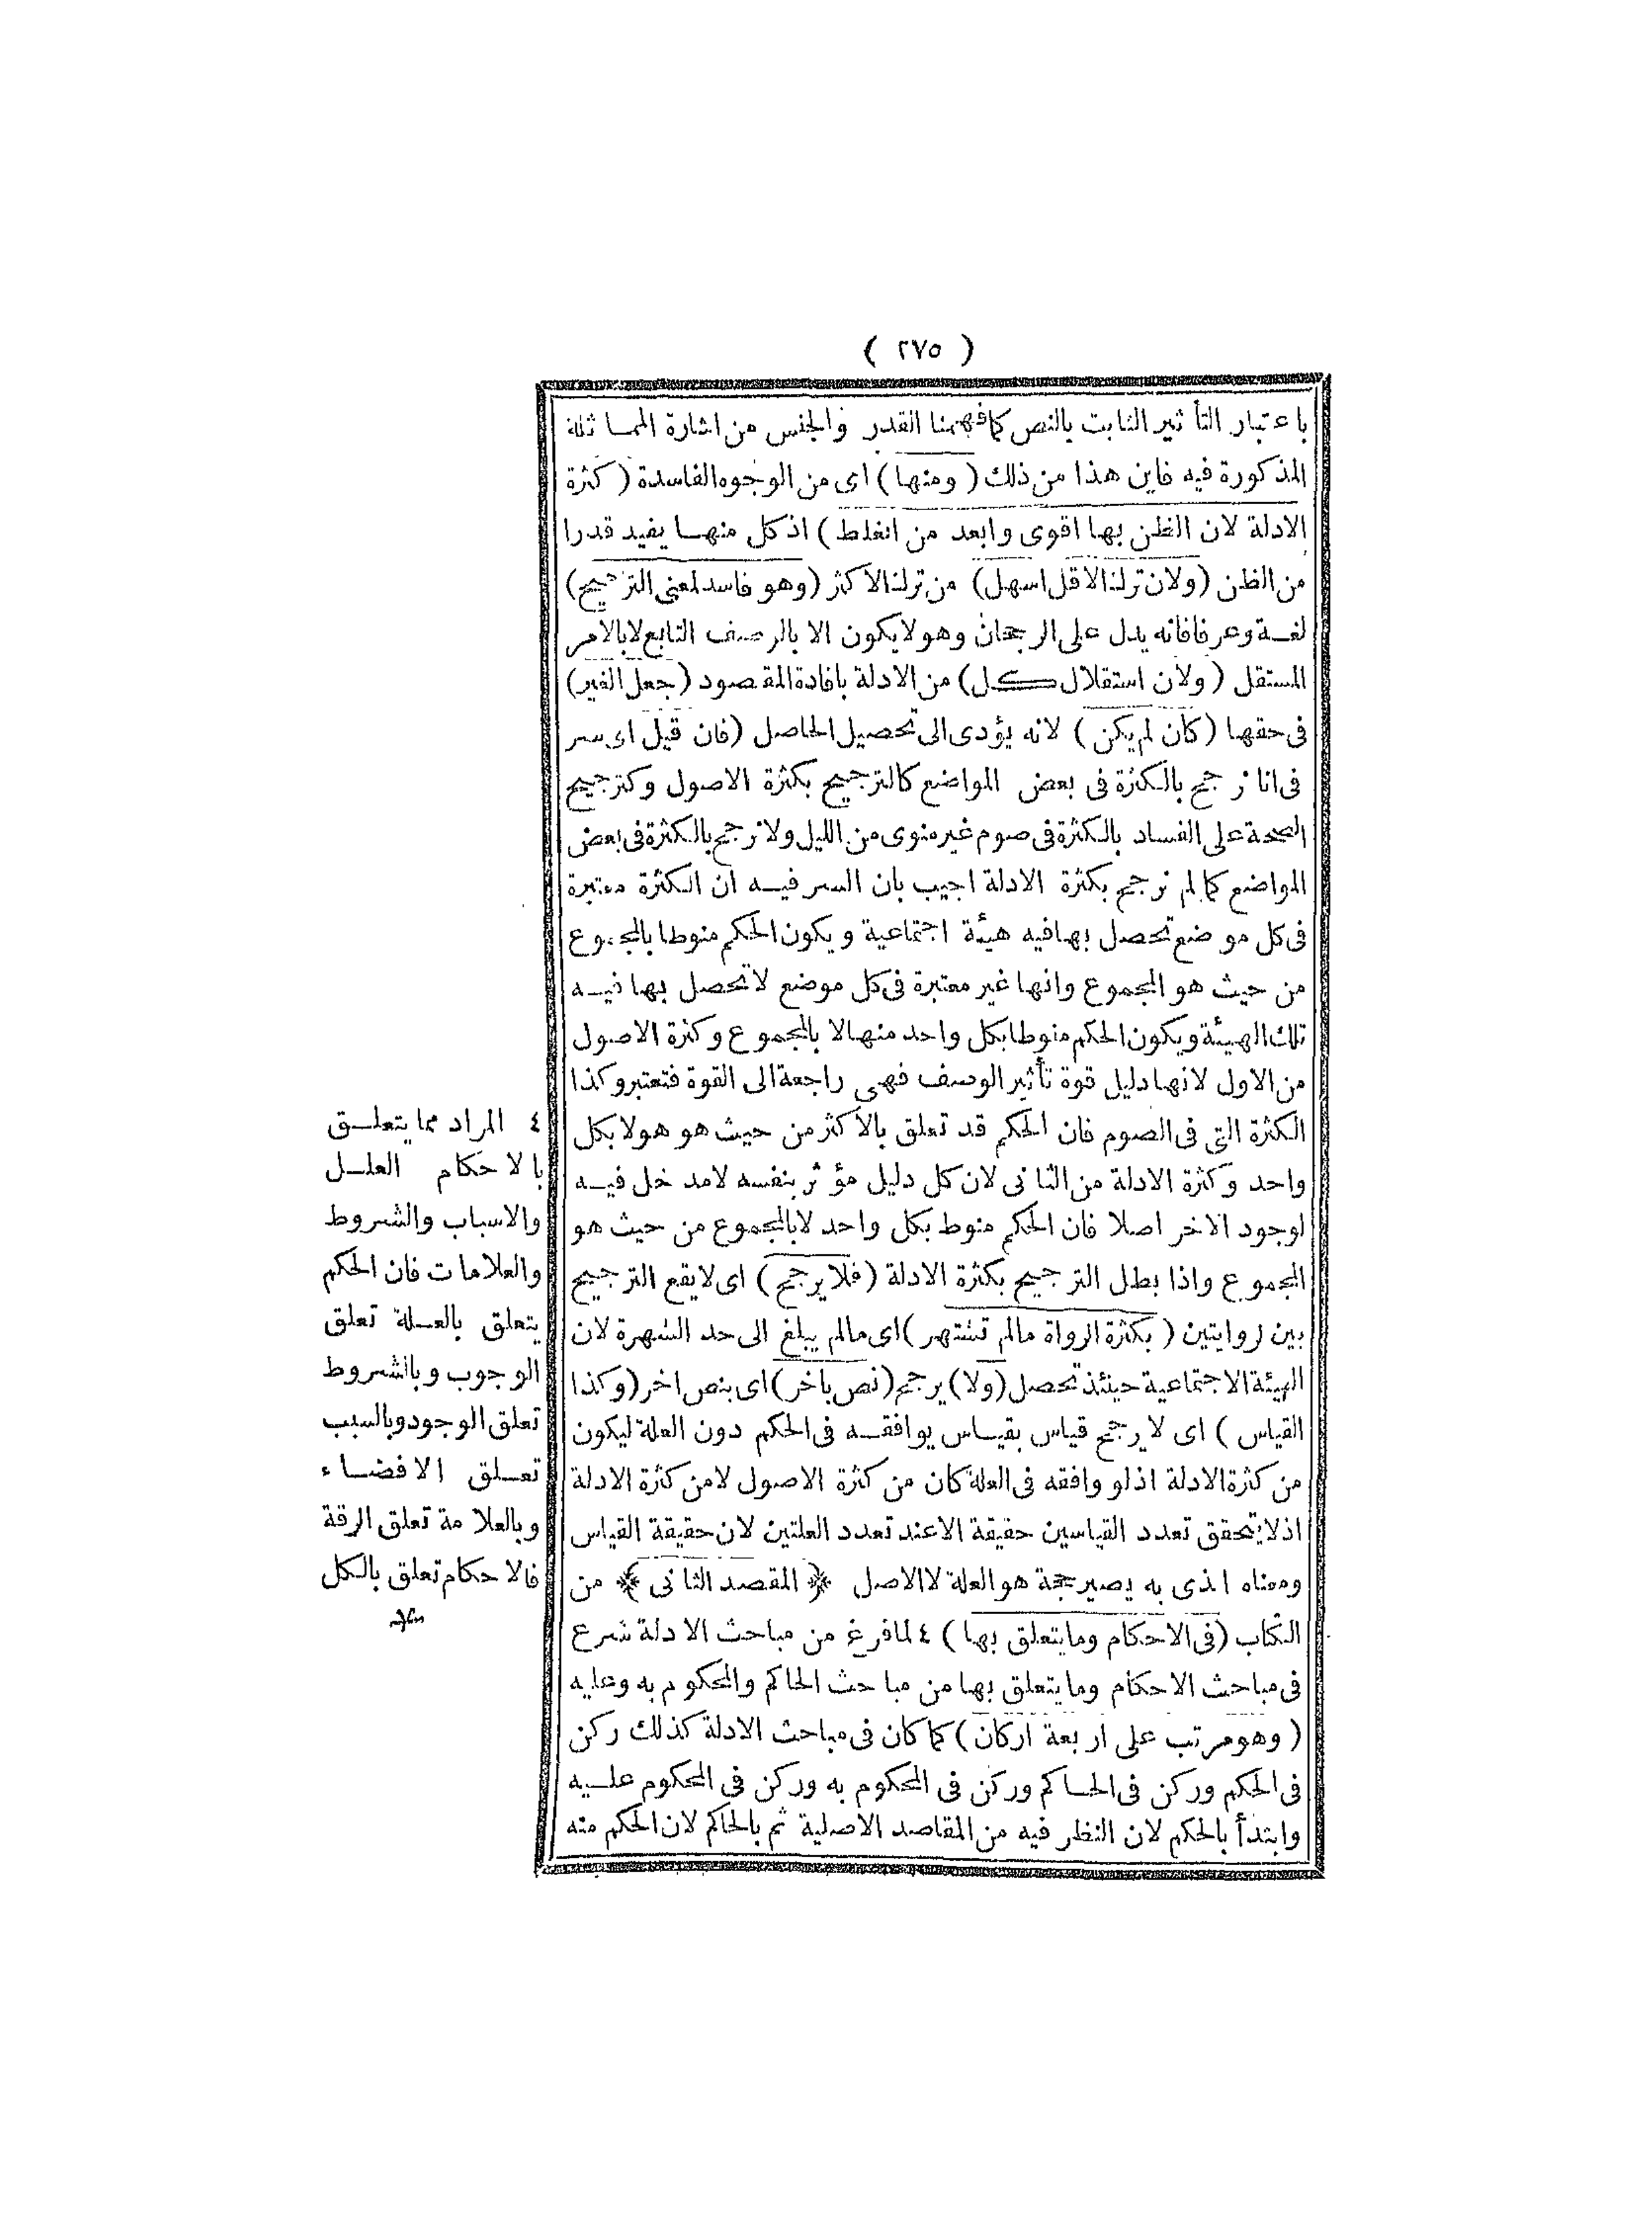 ( ٢٧٥ )
باعتبار التأثير الثابت بالنص كما فهمنا القدر والجنس من اشارة المماثلة
المذكورة فيه فاين هذا من ذلك ( ومنها ) اى من الوجوه الفاسدة ( كثرة
الادلة لان الظن بها اقوى وابعد من الغلط ) اذ كل منها يفيد قدرا
من الظن (ولان ترك الاقل اسهل) من ترك الاكثر (وهو فاسد لمعنى الترجيح)
لغة وعرفا فانه يدل على الرجحان وهو لا يكون الا بالوصف التابع لا بالامر
المستقل ( ولان استقلال كل) من الادلة بافادة المقصود (جعل الغير)
فى حقها ( كان لم يكن ) لانه يؤدى الى تحصيل الحاصل (فان قيل اى سر
فى انا نرجح بالكثرة فى بعض المواضع كالترجيح بكثرة الاصول وكترجيح
الصحة على الفساد بالكثرة فى صوم غير منوى من الليل ولا نرجح بالكثرة فى بعض
المواضع كما لم نرجح بكثرة الادلة اجيب بان السر فيه ان الكثرة معتبرة
فى كل موضع تحصل بها فيه هيئة اجتماعية ويكون الحكم منوطا بالمجموع
من حيث هو المجموع وانها غير معتبرة فى كل موضع لا تحصل بها فيه
تلك الهيئة ويكون الحكم منوطا بكل واحد منها لا بالمجموع وكثرة الاصول
من الاول لانها دليل قوة تأثير الوصف فهى راجعة الى القوة فتعتبر وكذا
الكثرة التى فى الصوم فان الحكم قد تعلق بالاكثر من حيث هو هو لا بكل
واحد وكثرة الادلة من الثانى لان كل دليل مؤثر بنفسه لا مدخل فيه
لوجود الاخر اصلا فان الحكم منوط بكل واحد لا بالمجموع من حيث هو
المجموع واذا بطل الترجيح بكثرة الادلة (فلا يرجح) اى لا يقع الترجيح
بين روايتين ( بكثرة الرواة مالم تشتهر )اى مالم يبلغ الى حد الشهرة لان
الهيئة الاجتماعية حينئذ تحصل (ولا) يرجح (نص باخر) اى بنص اخر (وكذا
القياس ) اى لا يرجح قياس بقياس يوافقه فى الحكم دون العلة ليكون
من كثرة الادلة اذ لو وافقه فى العلة كان من كثرة الاصول لا من كثرة الادلة
اذ لا يتحقق تعدد القياسين حقيقة الا عند تعدد العلتين لان حقيقة القياس
ومعناه الذى به يصير حجة هو العلة لا الاصل ﴿ المقصد الثانى ﴾ من
الكتاب (فى الاحكام وما يتعلق بها ) ٤ لما فرغ من مباحث الادلة شرع
فى مباحث الاحكام وما يتعلق بها من مباحث الحاكم والمحكوم به وعليه
( وهو مرتب على اربعة اركان ) كما كان فى مباحث الادلة كذلك ركن
فى الحكم وركن فى الحاكم وركن فى المحكوم به وركن فى المحكوم عليه
وابتدأ بالحكم لان النظر فيه من المقاصد الاصلية ثم بالحاكم لان الحكم منه
٤ المراد مما يتعلق
بالاحكام العلل
والاسباب والشروط
والعلامات فان الحكم
يتعلق بالعلة تعلق
الوجوب وبالشروط
تعلق الوجود وبالسبب
تعلق الافضاء
وبالعلامة تعلق الرقة
فالاحكام تعلق بالكل